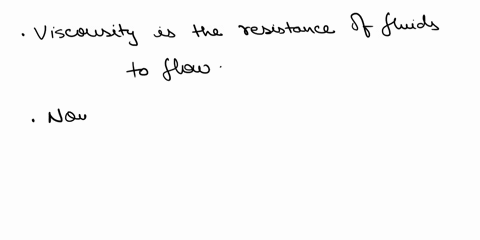 . Viscousity is the resistance of fluids
to flow.
. Now